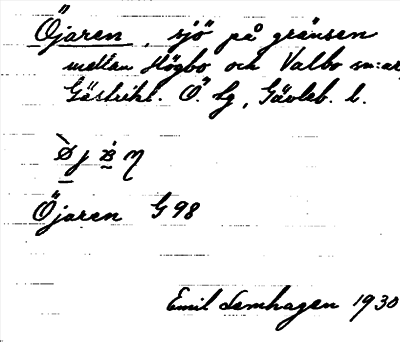 Öjaren, sjö på gränsen
mellan Högbo och Valbo sn:ar,
Gästrikl. Ö. lg, Gävleb. l.
Öjaren G 98
Emil Lemhagen 1930